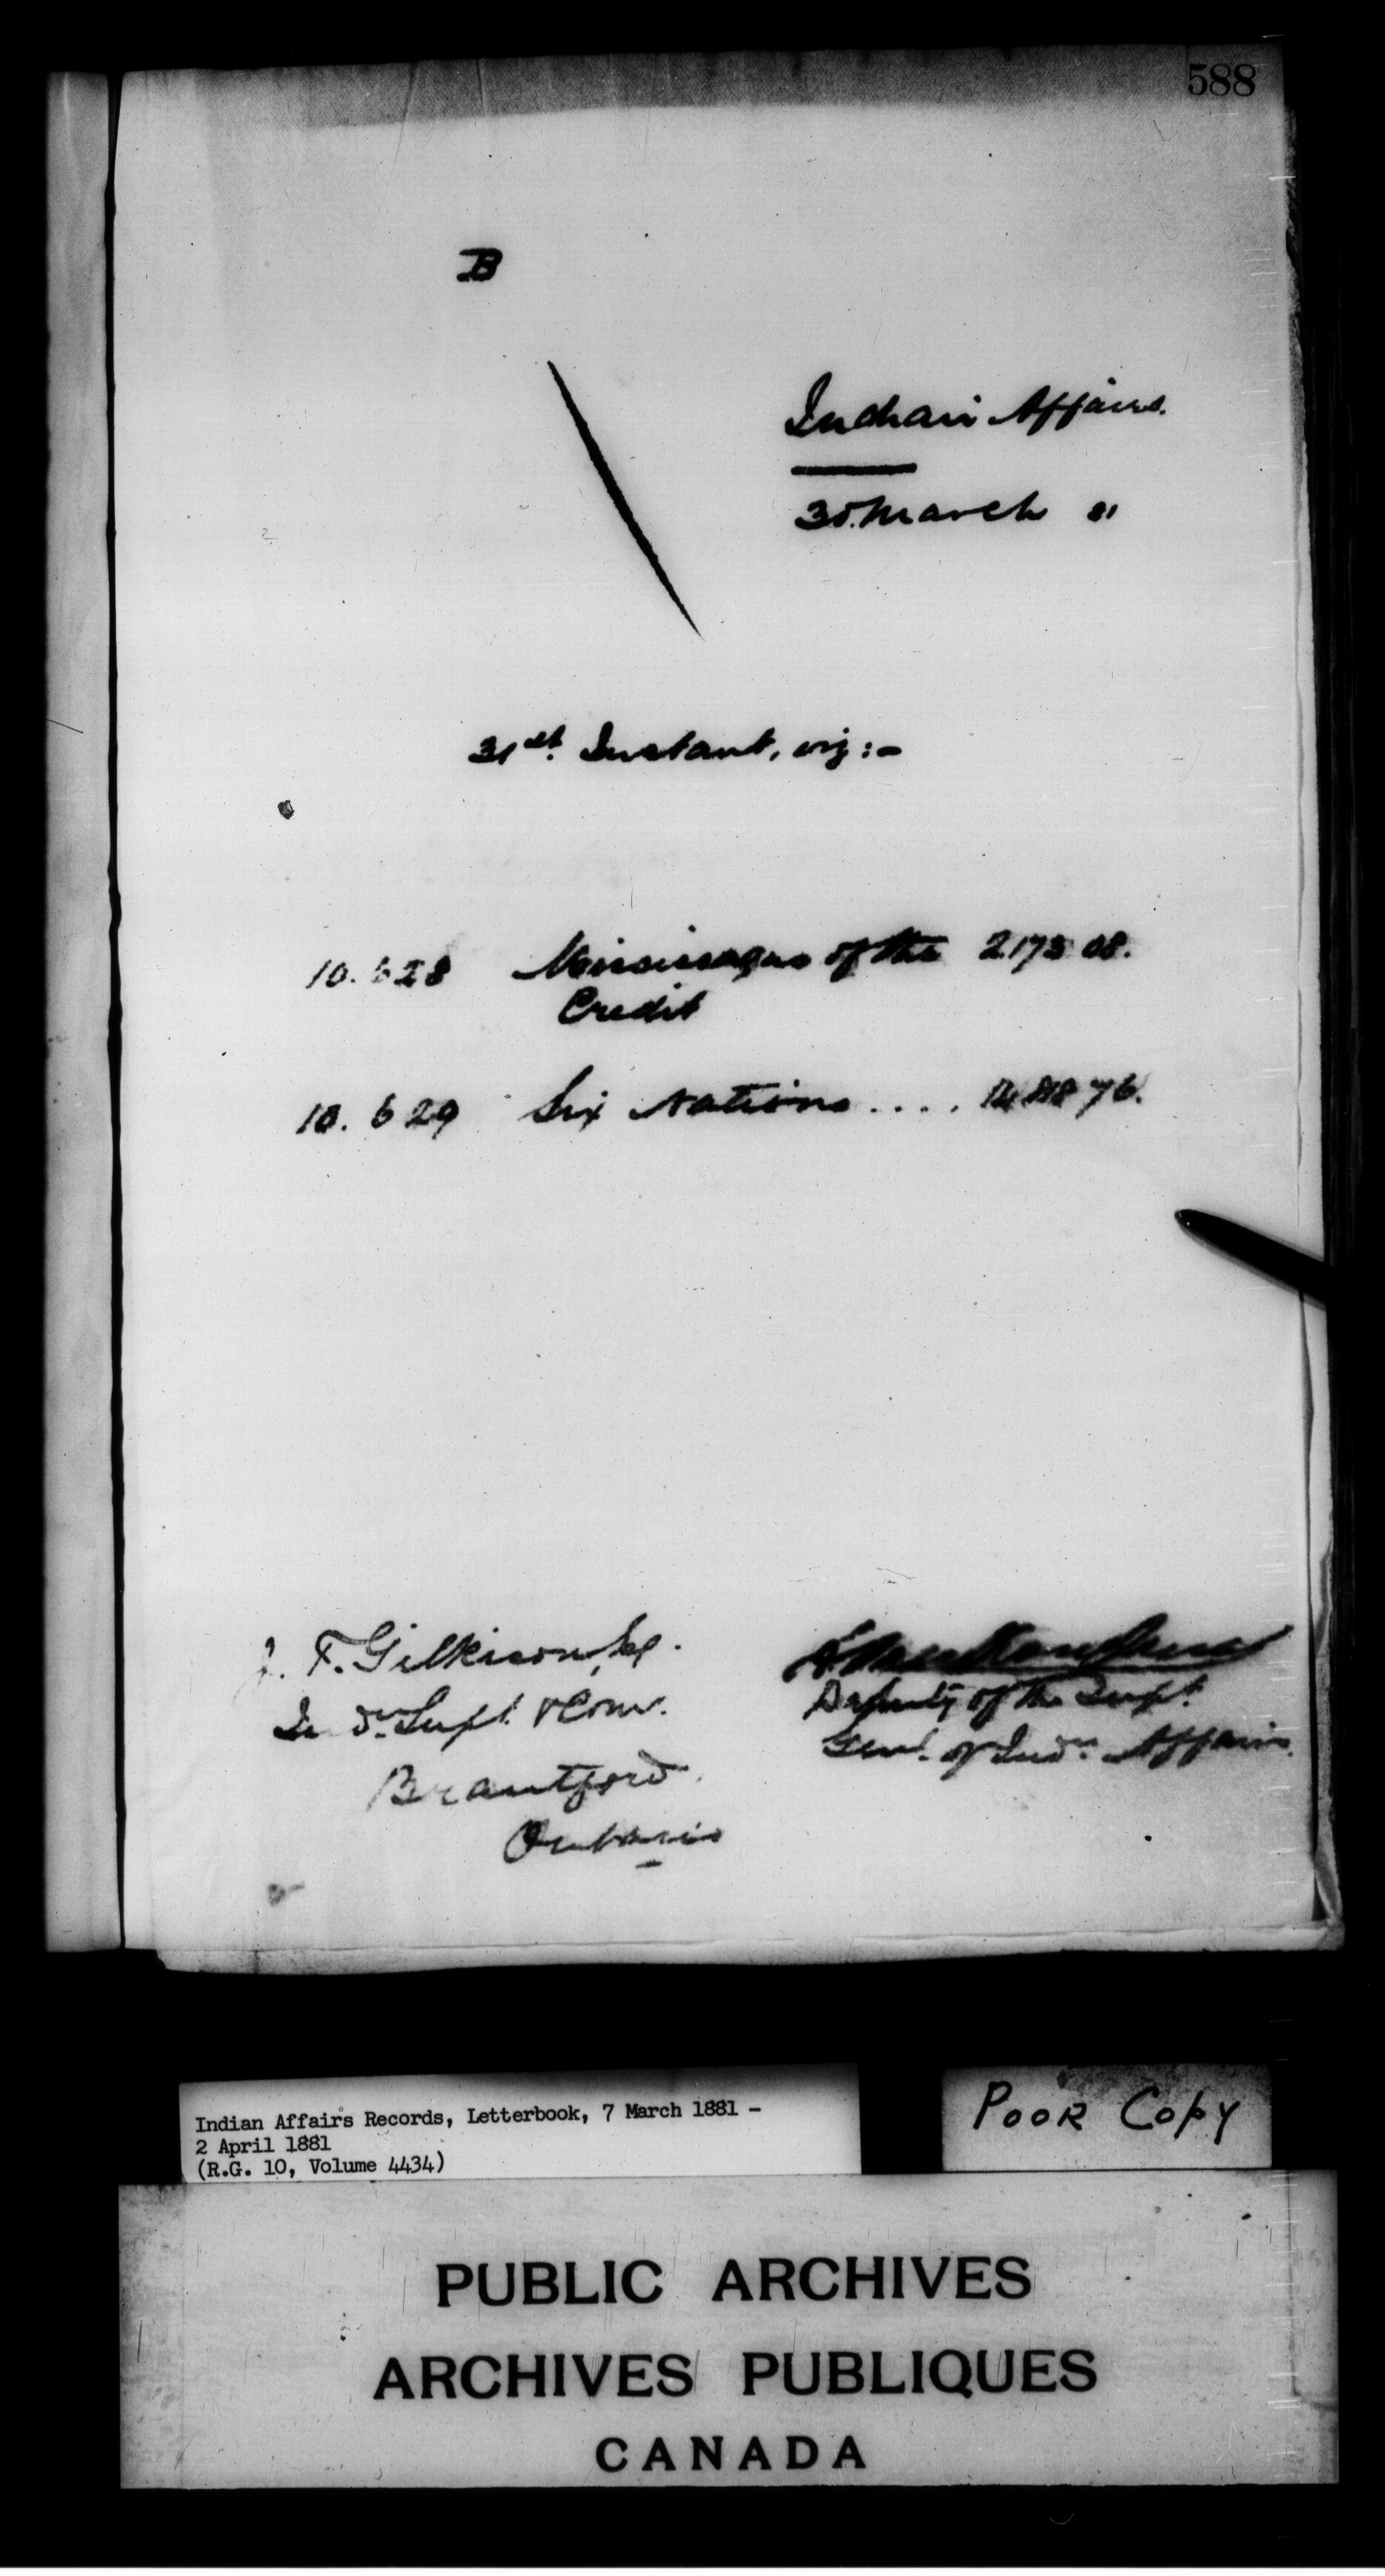 588
B
Indian Affairs.
30. March 81
31st. Instant, viz:-
10.628 Mississaguas of the 2.173 08.
Credit
10.629 Six Nations .... 76.
J. T. Gilkison, Esq.
Indn. Supt. & Comr.
Deputy of the Supt.
Genl. of Indn. Affairs.
Brantford
Ontario
Indian Affairs Records, Letterbook, 7 March 1881 -
2 April 1881
(R.G. 10, Volume 4434)
POOR COPY
PUBLIC ARCHIVES
ARCHIVES PUBLIQUES
CANADA